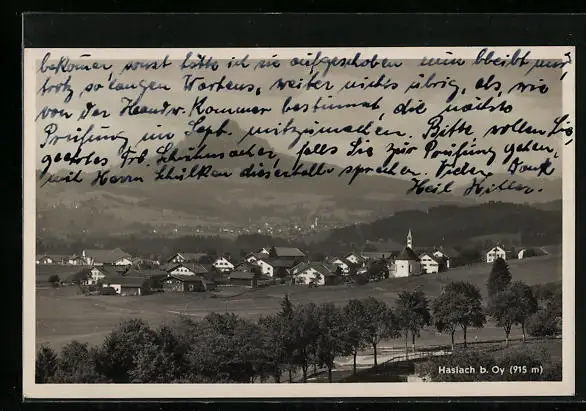 bekomen, sonst hätte ich sie aufgeschoben nun bleibt mir
trotz so langen Wartens, weiter nichts übrig, als, wie
von der Handw. Kammer bestimmt, die nächste
Prüfung im Sept. mitzumachen. Bitte wollen Sie,
geehrtes Frl. Schuhmacher, falls Sie zur Prüfung gehen,
mit Herrn Schülken dieserhalb sprechen. Vielen Dank
Heil Hitler
Haslach b. Oy (915 m)